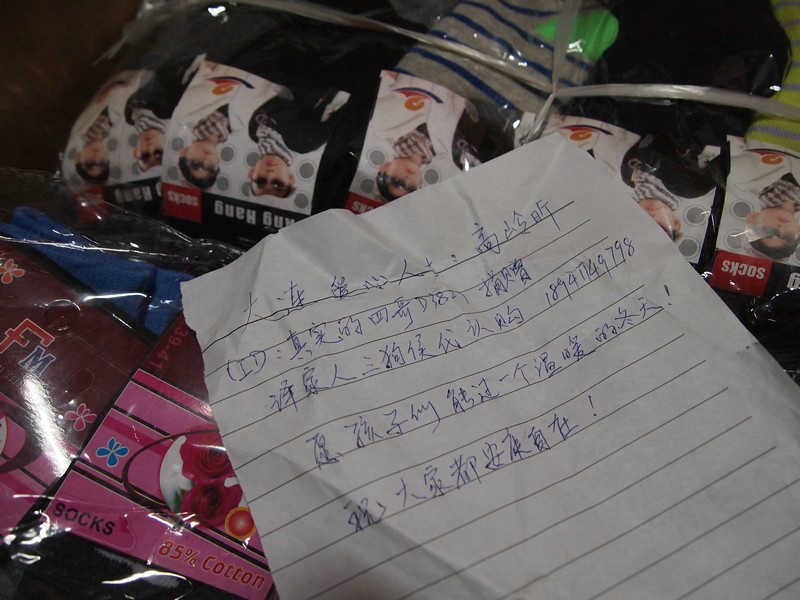 大连爱心人士：高岭昕
(ID)：真实的四哥 捐赠
请家人三狗侯代认购 18941149798
愿孩子们能过一个温暖的冬天！
祝大家都安康自在！
SOCKS
ang Hang
SOCKS
FM
39-41
SOCKS
85% Cotton